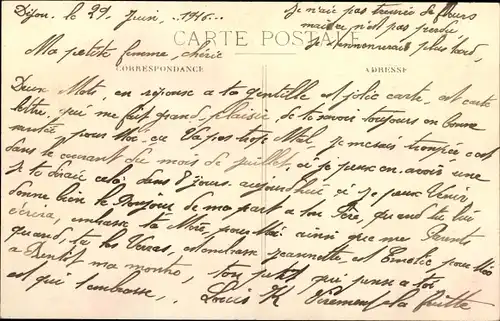 Dijon. le 29 Juin, 1916.
Je n'ai pas trouvée de fleurs
mais ce n'est pas perdu
je t'en enverrais plus tard,
CARTE POSTALE
Ma petite femme, chérie
CORRESPONDANCE
ADRESSE
Deux Mots, en réponse a ta gentille est jolie carte, est carte
lettre, qui me fait grand plaisir, de te savoir toujours en bonne
santée, pour Moi, ça Va pas trop Mal, je mesais trompée c'est
dans le courant du mois de juillet, si je peux en avoir une
je te dirai cela dans 8 jours. aujourd'hui si je peux Venir
donne bien le Bonjour de ma part a ton Père, quand tu lui
écrira, embrasse ta Mère, pour Moi ainsi que mes Parents
quand, tu les Verras, est embrasse Jeannette, est Emotie, pour Moi
a Bientôt ma ton petit qui pense a toi
est qui t'embrasse, Louis K Vivement la